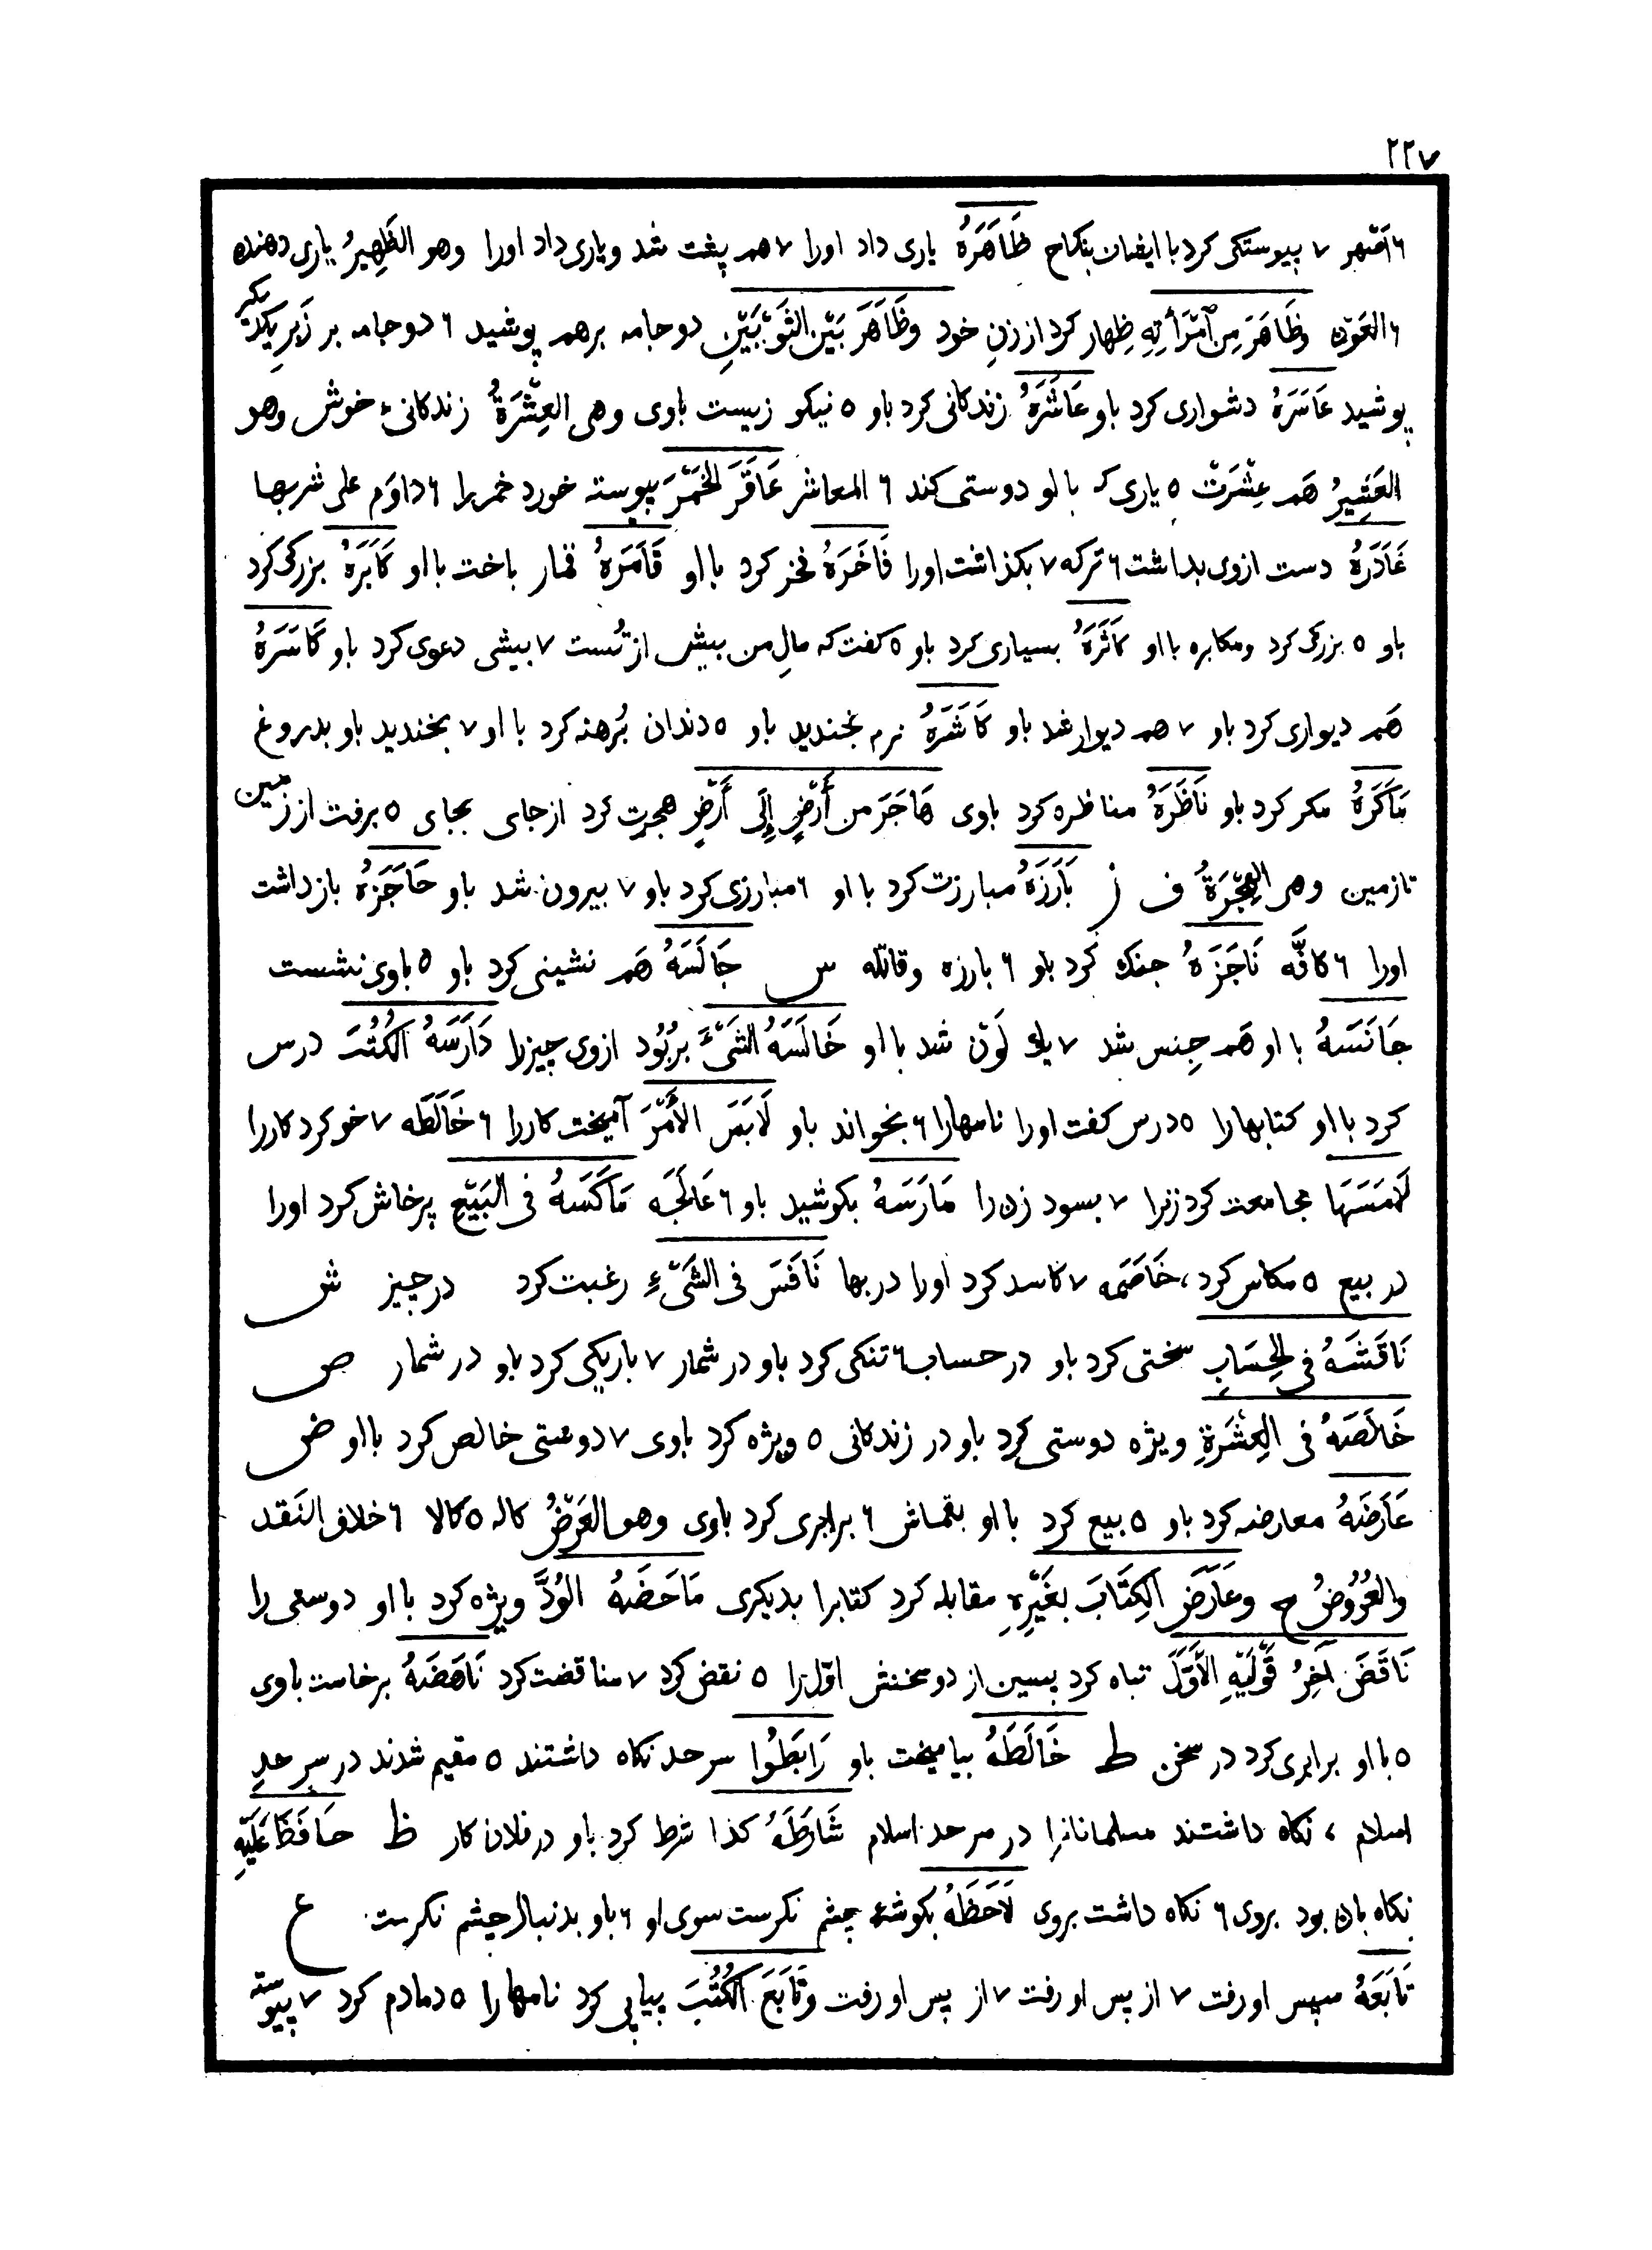 ۲۲۷
۶ اصهر ۷ پیوستکی کرد با ایشان بنکاح ظَاهَرَهُ یاری داد اورا ۷ هم پشت شد و یاری داد اورا وهو الظَهِیرُ یاری دهنده
۶ العَوْن وظَاهَرَ مِن اَمْرَأَتِهِ ظِهار کرد از زنِ خود وظَاهَرَ بَیْن الثَوْبَیْنِ دو جامه برهم پوشید ۶ دو جامه بر زَبَرِ یکدیکر
پوشید عَاسَرَهُ دشواری کرد باو عَاشَرَهُ زندکانی کرد باو ۵ نیکو زیست باوی وهی العِشْرَةُ زندکانیٔ خوش وهو
العَشِیرُ هَم عِشْرَتْ ۵ یاری که با او دوستی کند ۶ المعاشر عَاقَرَ الخَمْرَ پیوسته خورد خمر را ۶ داوَم علی شربها
غَادَرَهُ دست ازوی بداشت ۶ ترکه ۷ بکذاشت اورا فَاخَرَهُ فخر کرد با او قَامَرَهُ قمار باخت با او کَابَرَهُ بزرکی کرد
باو ۵ بزرکی کرد ومکابره با او کَاثَرَهُ بسیاری کرد باو ۵ کفت که مالِ من بیش از تُست ۷ بیشی دعوی کرد باو کَاسَرَهُ
هَم دیواری کرد باو ۷ هم دیوار شد باو کَاشَرَهُ نرم بخندید باو ۵ دندان بُرهنه کرد با او ۷ بخندید باو بدروغ
مَاکَرَهُ مکر کرد باو نَاظَرَهُ مناظره کرد باوی هَاجَرَ من أَرْضٍ إِلَی أَرْضٍ هجرت کرد از جای بجای ۵ برفت از زمین
تا زمین وهی الهِجْرَةُ ف ز بَارَزَهُ مبارزت کرد با او ۶ مبارزی کرد باو ۷ بیرون شد باو حَاجَزَهُ بازداشت
اورا ۶ کافَّه نَاجَزَهُ جنک کرد باو ۶ بارزه وقاتله س جَالَسَهُ هَم نشینی کرد باو ۵ باوی نشست
جَانَسَهُ با او هَم جِنس شد ۷ یک لَوْن شد با او خَالَسَهُ الشَیْءَ برُبُود ازوی چیزرا دَارَسَهُ الکُتُبَ درس
کرد با او کتابهارا ۵ درس کفت اورا نامهارا ۶ بخواند باو لَابَسَ الأَمْرَ آمیخت کاررا ۶ خَالَطَه ۷ خو کرد کاررا
لَامَسَهَا مجامعت کرد زنرا ۷ بسود زن را مَارَسَهُ بکوشید باو ۶ عَالَجَه مَاکَسَهُ فی البَیْعِ پرخاش کرد اورا
در بیع ۵ مکاس کرد، خَاصَمَه ۷ کاسد کرد اورا دربها نَافَسَ فی الشَیْءِ رغبت کرد درچیز ش
نَاقَشَهُ فی الحِسَابِ سختی کرد باو درحساب ۶ تنکی کرد باو در شمار ۷ باریکی کرد باو در شمار ص
خَالَصَهُ فی العِشْرَةِ ویژه دوستی کرد باو در زندکانی ۵ ویژه کرد باوی ۷ دوستی خالص کرد با او ض
عَارَضَهُ معارضه کرد باو ۵ بیع کرد با او بقماش ۶ برابری کرد باوی وهو العَرْضُ کاله ۵ کالا ۶ خلاف النَقد
والعُرُوضُ ج وعَارَضَ الکِتَابَ بغَیْرِهِ مقابله کرد کتابرا بدیکری مَاحَضَهُ الوُدَّ ویژه کرد با او دوستی را
نَاقَضَ آخِرُ قَوْلَیْهِ الأَوَّلَ تباه کرد پسین از دو سخنش اوّل را ۵ نقض کرد ۷ مناقضت کرد نَاهَضَهُ برخاست باوی
۵ با او برابری کرد در سخن ط خَالَطَهُ بیامیخت باو رَابَطُوا سرحد نکاه داشتند ۵ مقیم شدند در سر حدِ
اسلام ، نکاه داشتند مسلمانانرا در سرحد اسلام شَارَطَهُ کذا شرط کرد باو درفلان کار ظ حَافَظَ عَلَیْهِ
نکاه بان بود بروی ۶ نکاه داشت بروی لَاحَظَهُ بکوشهٔ چشم نکرست سوی او ۶ باو بدنبال چشم نکرست ع
تَابَعَهُ سپس او رفت ۷ از پس او رفت ۷ از پس او رفت وتَابَعَ الکُتُبَ پیاپی کرد نامهارا ۵ دمادم کرد ۷ پیوسته